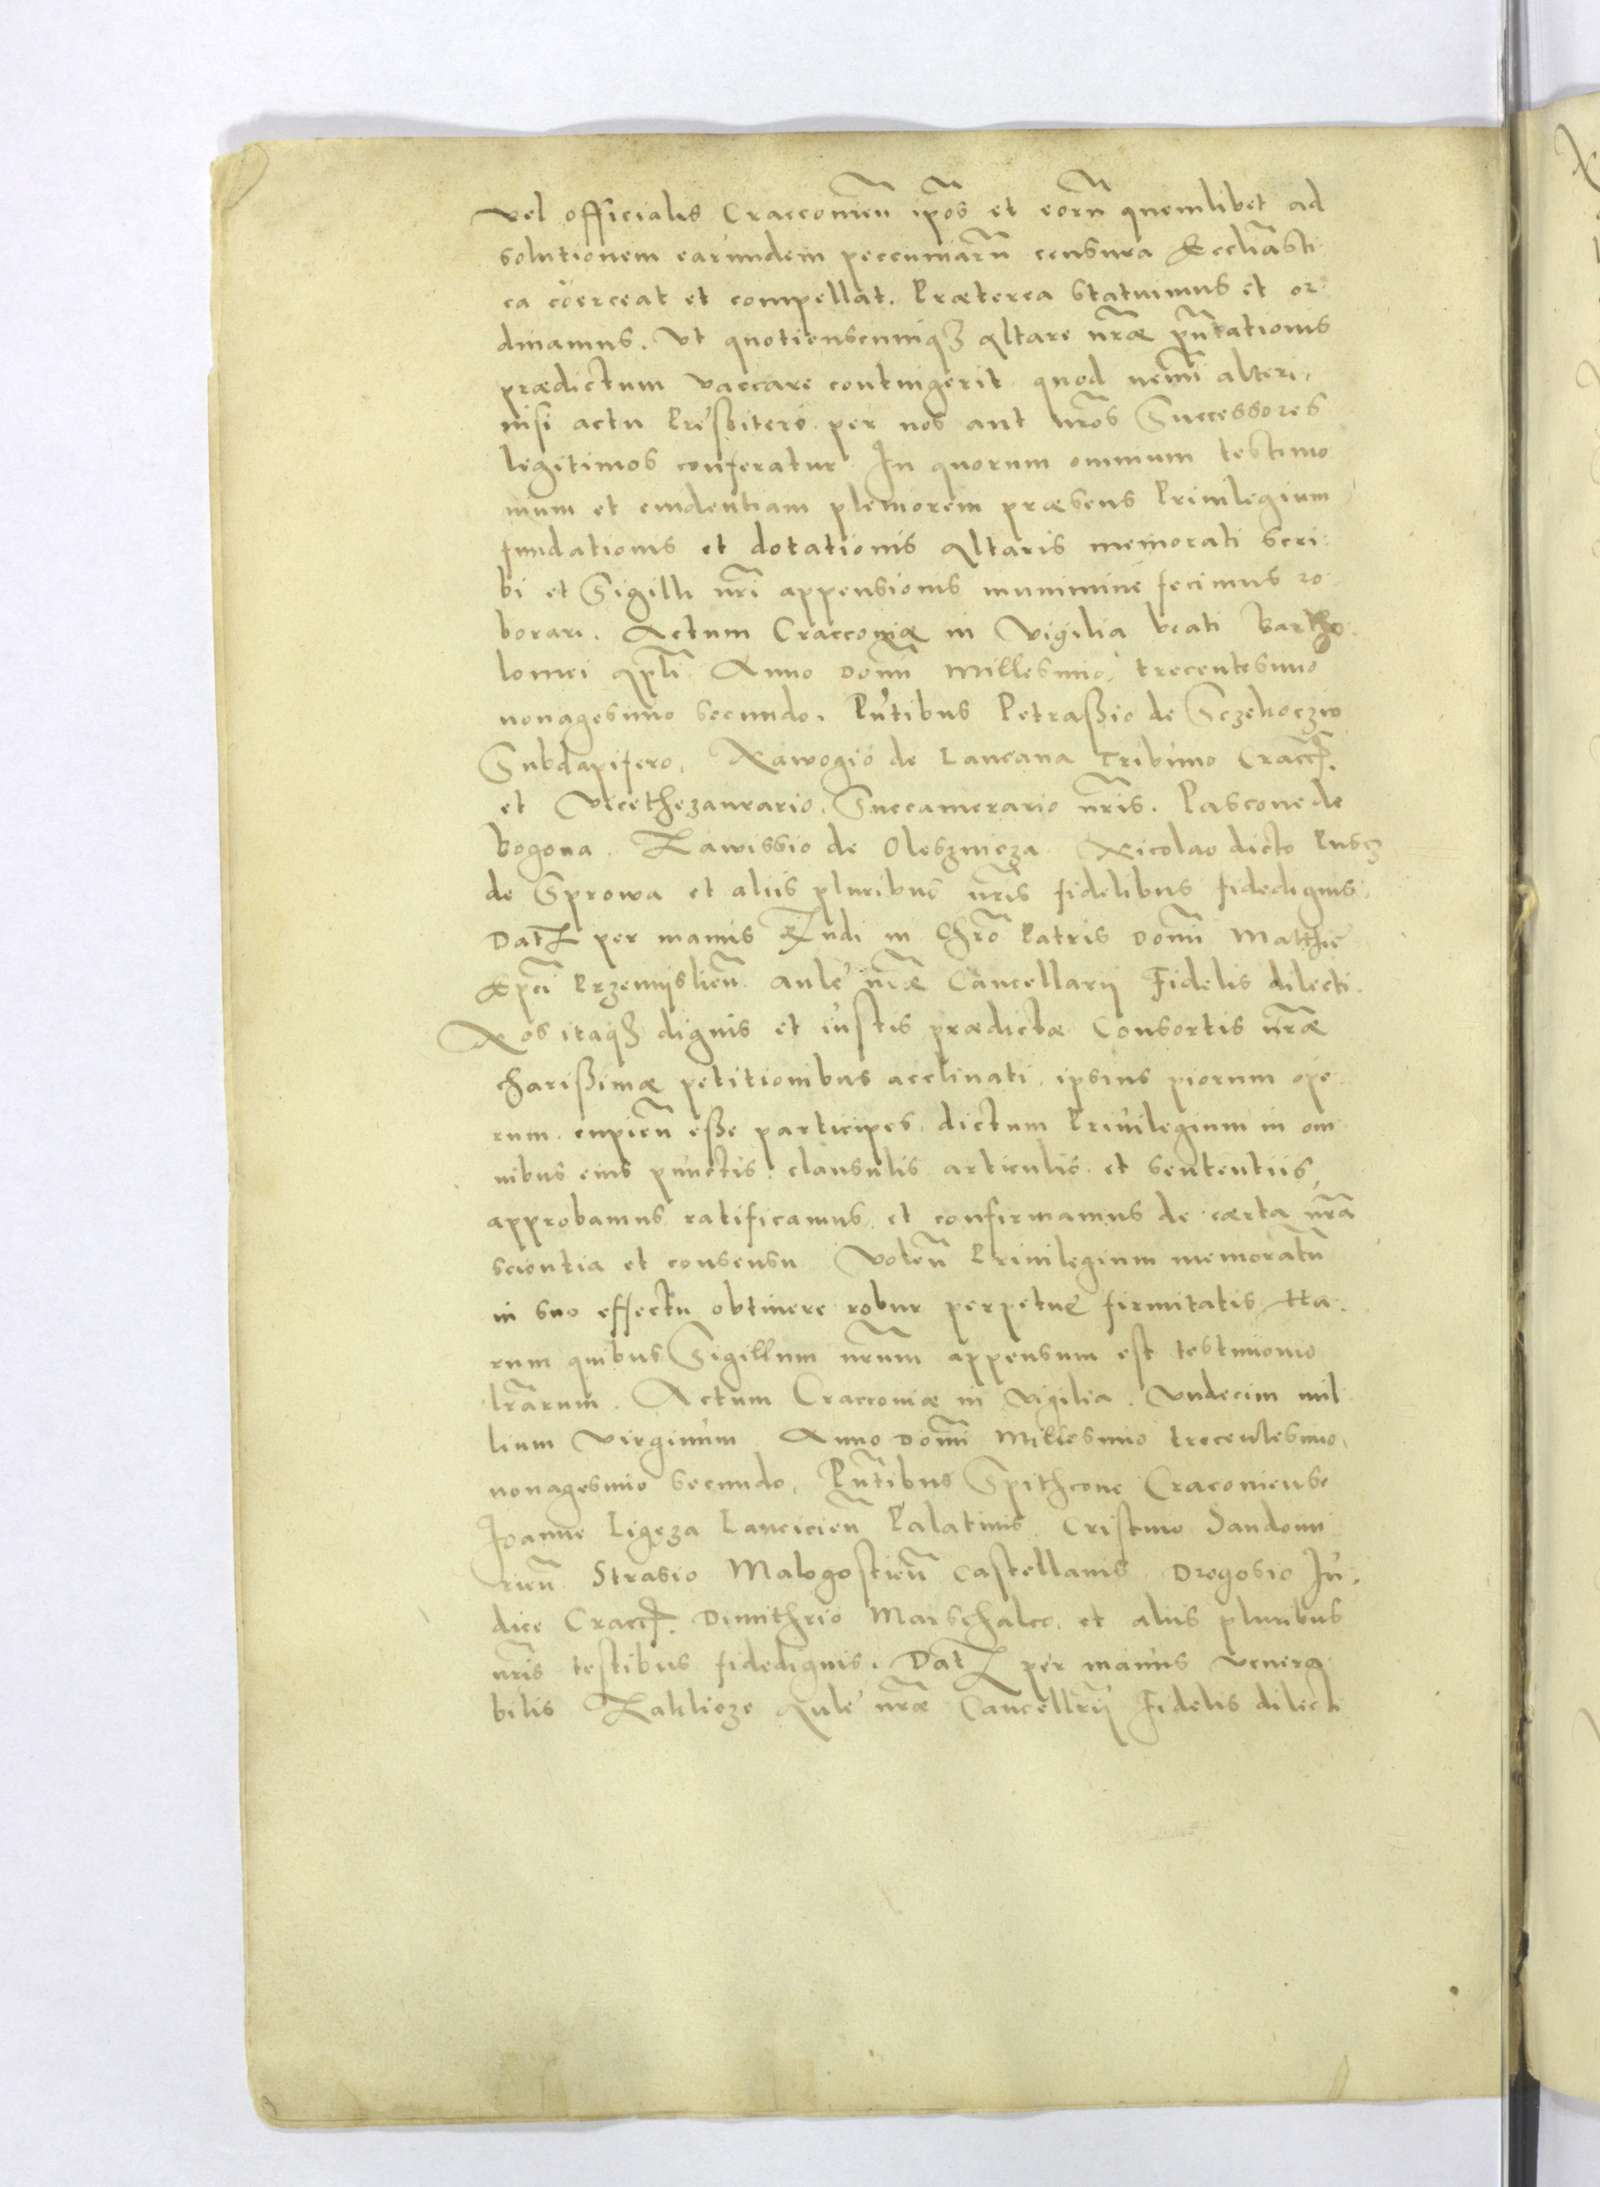 vel officialis Cracconien̄ ip̄os et eor̄u quemlibet ad
solutionem earundem peccuniar̄u censura Eccli̅asti
ca coerceat et compellat. Præterea statuimus et or
dinamus. Ut quotienscunqꝫ altare nr̄æ pn̄tationis
prædictum vaccare contingerit quod nemi̅ alteri,
nisi actu Presbitero per nos aut nr̄os Successores
legitimos conferatur In quorum omnium testimo
nium et euidentiam pleniorem præsens Priuilegium
fundationis et dotationis altaris memorati scri
bi et Sigilli nr̄i appensionis munimine fecimus ro
borari. Actum Cracconiæ in Vigilia beati Bartho
lomei apl̄i Anno Domi̅ Millesimo, trecentesimo
nonagesimo secundo. Pn̄tibus Petraßio de Sczekoczin
Subdapifero, Nawogio de Lancana Tribuno Cracc.
et Vicethezaurario, Succamerario nr̄is. Pascone de
Bogona. Zawissio de Olesznicza Nicolao dicto Puscz
de Sprowa et aliis pluribus nr̄is fidelibus fidedignis.
Dat per manus Rn̄di in Chr̄o Patris Domi̅ Matthie
Epc̄i Przemijslien̄ aule nr̄æ Cancellarij Fidelis dilecti.
Nos itaqꝫ dignis et iustis prædictæ Consortis nr̄æ
charißimæ petitionibus acclinati, ipsius piorum ope
rum cupien̄ eße participes, dictum Priuilegium in om
nibus eius punctis, clausulis articulis et sententiis,
approbamus ratificamus, et confirmamus de cærta nr̄a
scientia et consensu Volen̄ Priuilegium memorat̄u
in suo effectu obtinere robur perpetuę firmitatis Ha
rum quibus Sigillum nr̄um appensum est testimonio
lr̄arum. Actum Cracconiæ in Vigilia. Vndecim mil
lium Virginum Anno Domi̅ Millesimo trecentesimo,
nonagesimo secundo, Pn̄tibus Spithcone Craconiense
Joanne Ligęza Lancicien̄ Palatinis Cristino Sandomi
rien̄ Strasio Malogostien̄ Castellanis Drogosio Ju
dice Cracc. Dimithrio Marschalco, et aliis pluribus
nr̄is testibus fidedignis. Dat per manus venera
bilis Zaklicze Aule nr̄æ Cancellr̄ij Fidelis dilecti